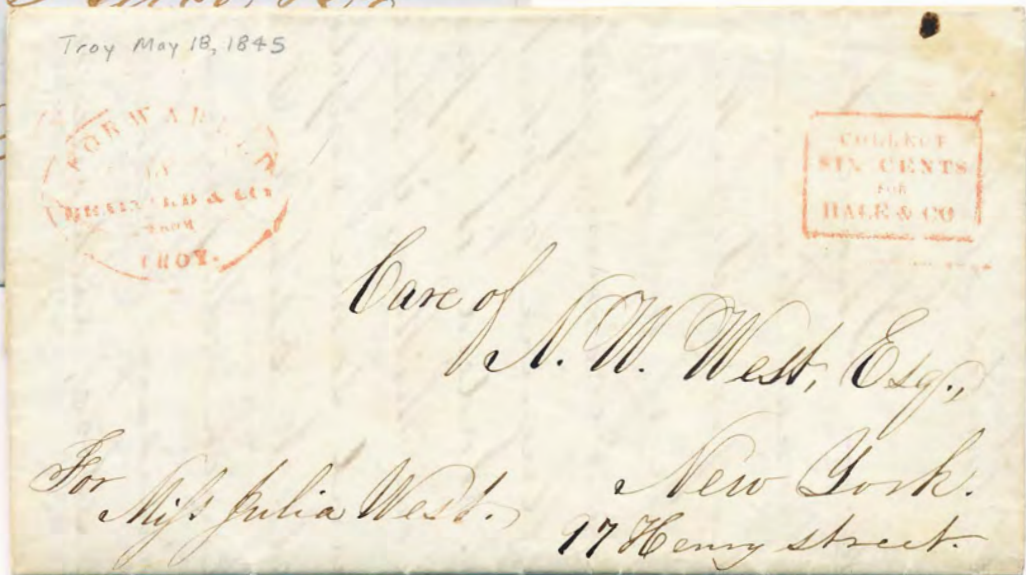 Troy May 18, 1845
FORWARDED
BY
BRAINARD & CO
FROM
TROY.
COLLECT
SIX CENTS
FOR
HALE & CO
Care of
N. W. West, Esq.,
New York.
97 Henry street.
For
Miss Julia West.